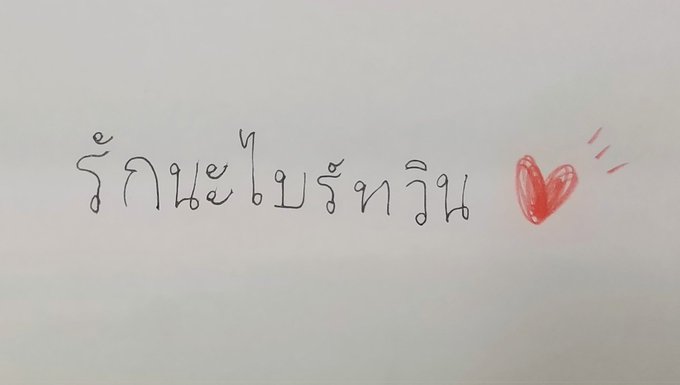 รักนะไบร์ทวิน